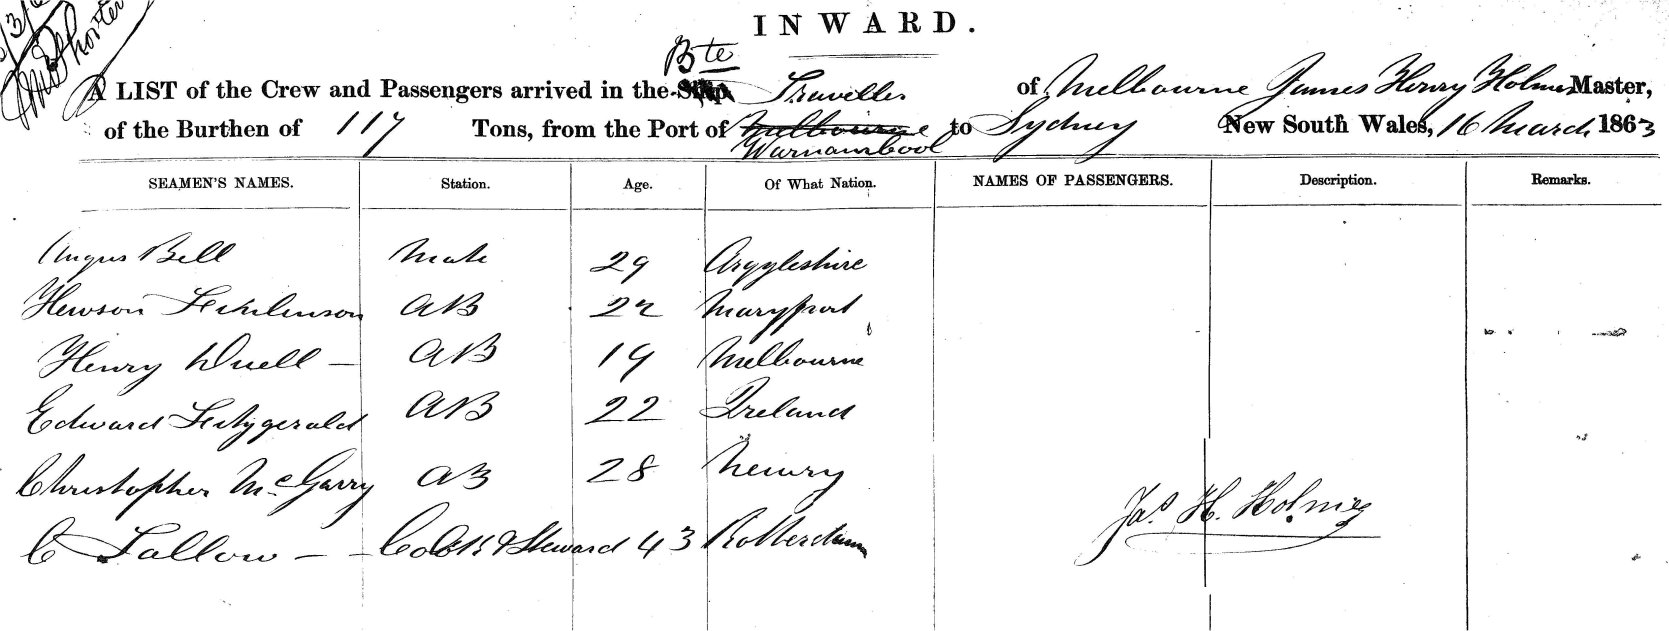 INWARD.
Bte
A LIST of the Crew and Passengers arrived in the Ship Traveller of Melbourne James Henry Holmes Master,
of the Burthen of 117 Tons, from the Port of Melbourne to Sydney New South Wales, 16 March 1863
Warnambool
SEAMEN'S NAMES. Station. Age. Of What Nation. NAMES OF PASSENGERS. Description. Remarks.
Angus Bell Mate 29 Argyleshire
Hewson 22 Maryport AB
Henry Duell — AB 19 Melbourne
Edward Fitzgerald AB 22 Ireland
Christopher McGarry AB 28 Newry
C Fallow — — Cook & Steward 43 Rotterdam
Jas. H. Holmes